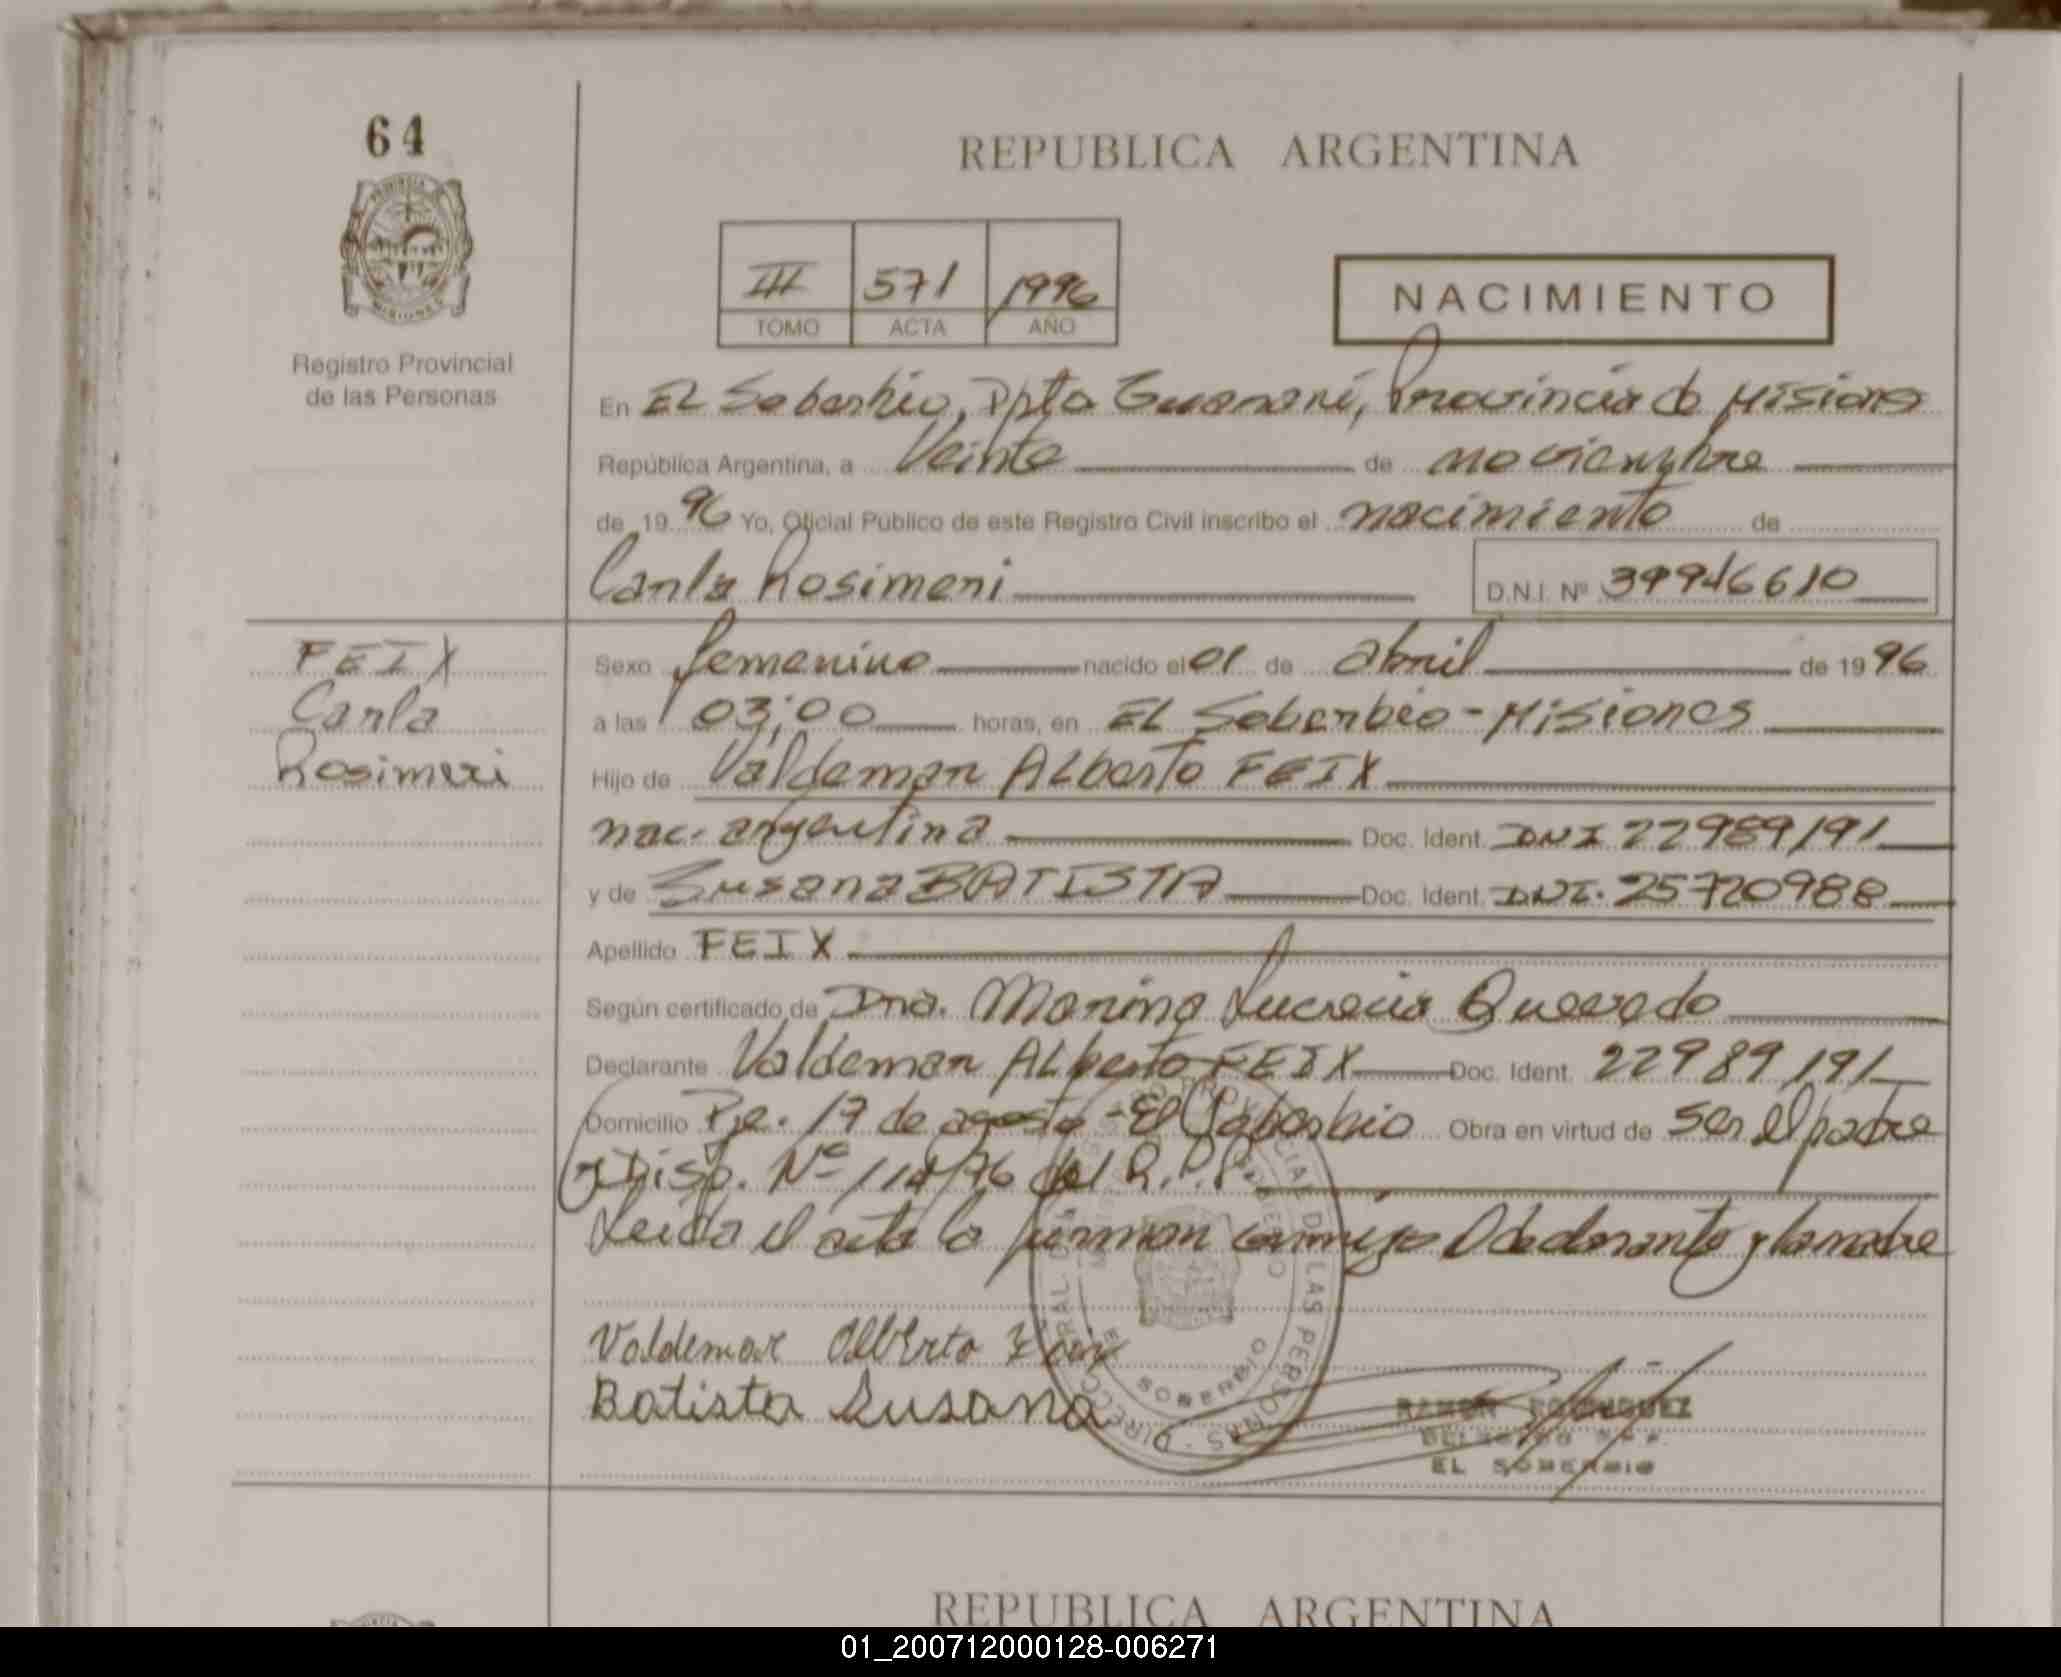 64
REPUBLICA ARGENTINA
III 571 1996
TOMO ACTA AÑO
NACIMIENTO
Registro Provincial
de las Personas
En El Soberbio, Dpto Guarani, Provincia de Misiones
República Argentina, a Veinte de noviembre
de 1996 Yo, Oficial Público de este Registro Civil inscribo el nacimiento de
Carla Rosimeri D.N.I. Nº 39946610
FEIX
Carla
Rosimeri
Sexo femenino nacido el 01 de abril de 1996
a las 03;00 horas, en El Soberbio - Misiones
Hijo de Valdemar Alberto FEIX
nac. argentina Doc. Ident. DNI 22989191
y de Susana BATISTA Doc. Ident. DNI. 25720988
Apellido FEIX
Según certificado de Dra. Marina Lucrecia Quevedo
Declarante Valdemar Alberto FEIX Doc. Ident. 22989191
Domicilio Pje. 17 de agosto - El Soberbio Obra en virtud de ser el padre
y Disp. Nº 114/96 del R.P.P.
Leida el acta la firman conmigo el declarante y la madre
Valdemar Alberto Feix
Batista Susana
SOBERBIO
RAMON RODRIGUEZ
DELEGADO R.P.P.
EL SOBERBIO
REPUBLICA ARGENTINA
01_200712000128-006271